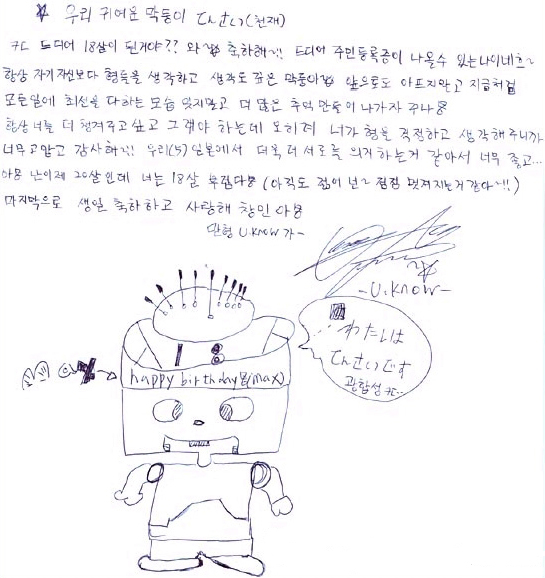 ☆ 우리 귀여운 막둥이 てんさい(천재)
ㅋㄷ 드디어 18살이 된거야?? 와~☆ 축하해~!! 드디어 주민등록증이 나올수 있는나이네ㅎ~
항상 자기자신보다 형들을 생각하고 생각도 깊은 막둥아☆ 앞으로도 아프지말고 지금처럼
모든일에 최선을 다하는모습 잊지말고 더 많은 추억 만들어 나가자
항상 너를 더 챙겨주고싶고 그래야 하는데 오히려 너가 형을 걱정하고 생각해주니까
너무고맙고 감사해~!! 우리(5) 일본에서 더욱더 서로를 의지하는거 같아서 너무 좋고...
난이제 20살인데 너는 18살 부럽다 (아직도 젊어 넌~ 점점 멋져지는거같아~!!)
마지막으로 생일 축하하고 사랑해 창민아
맏형 U.know가~
-U.know-
わたしは
てんさいです
광합성 ㅋㄷ..
18
happy birthday (max)